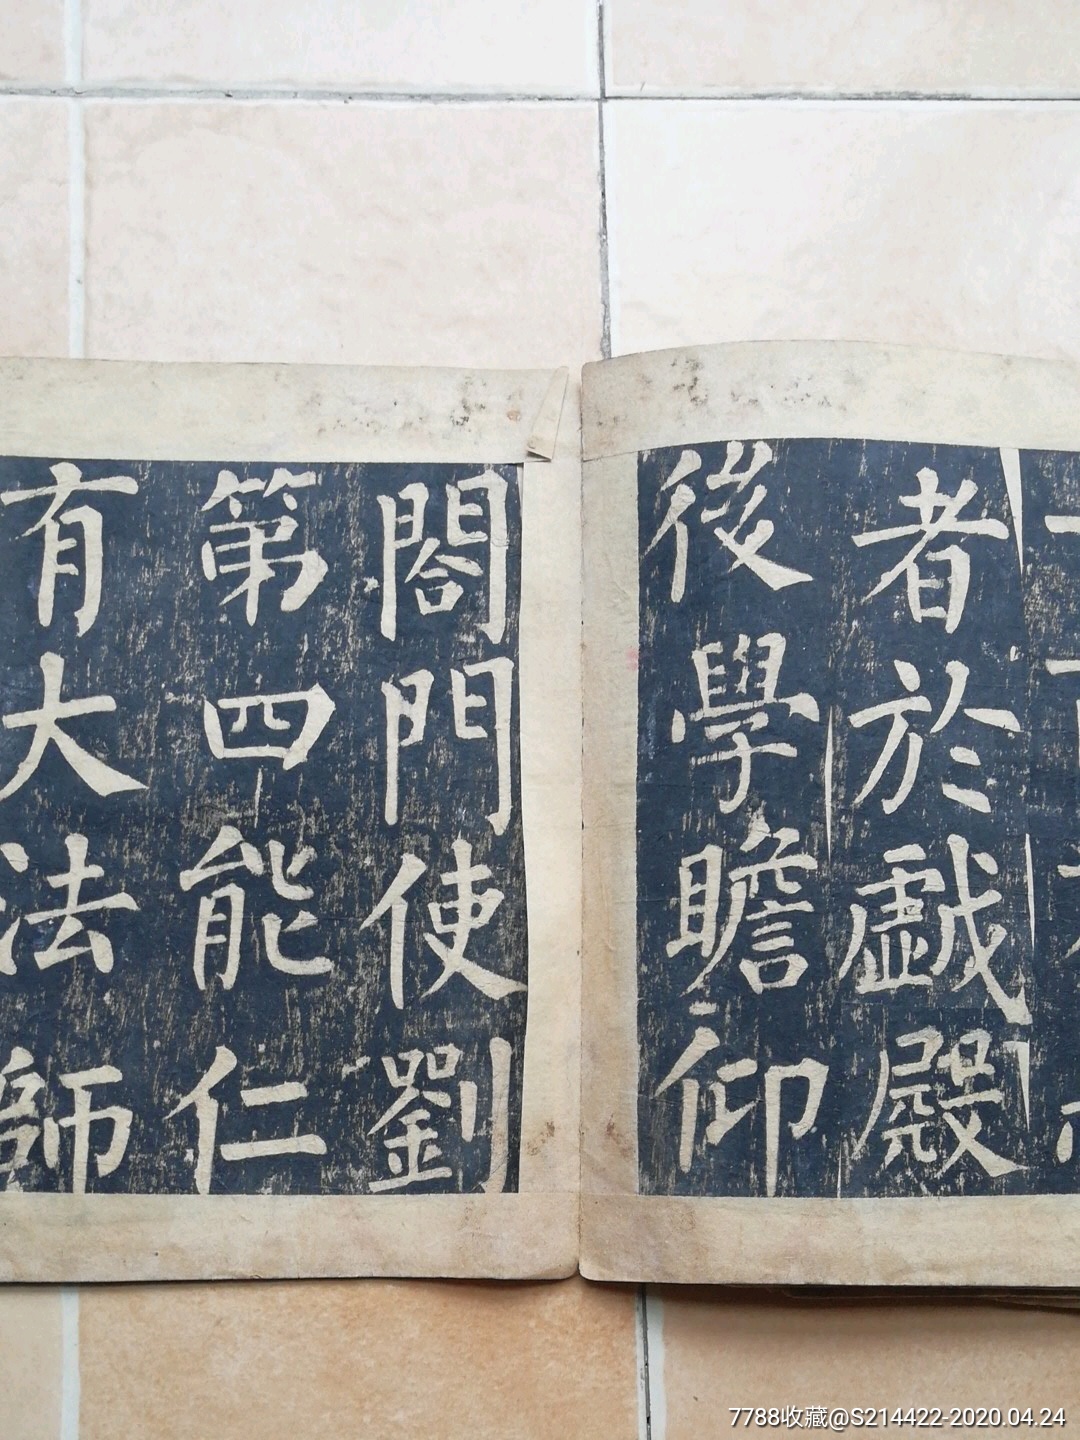 者於戲殿
後學瞻仰
閤門使劉
第四能仁
有大法師
7788收藏@S214422-2020.04.24